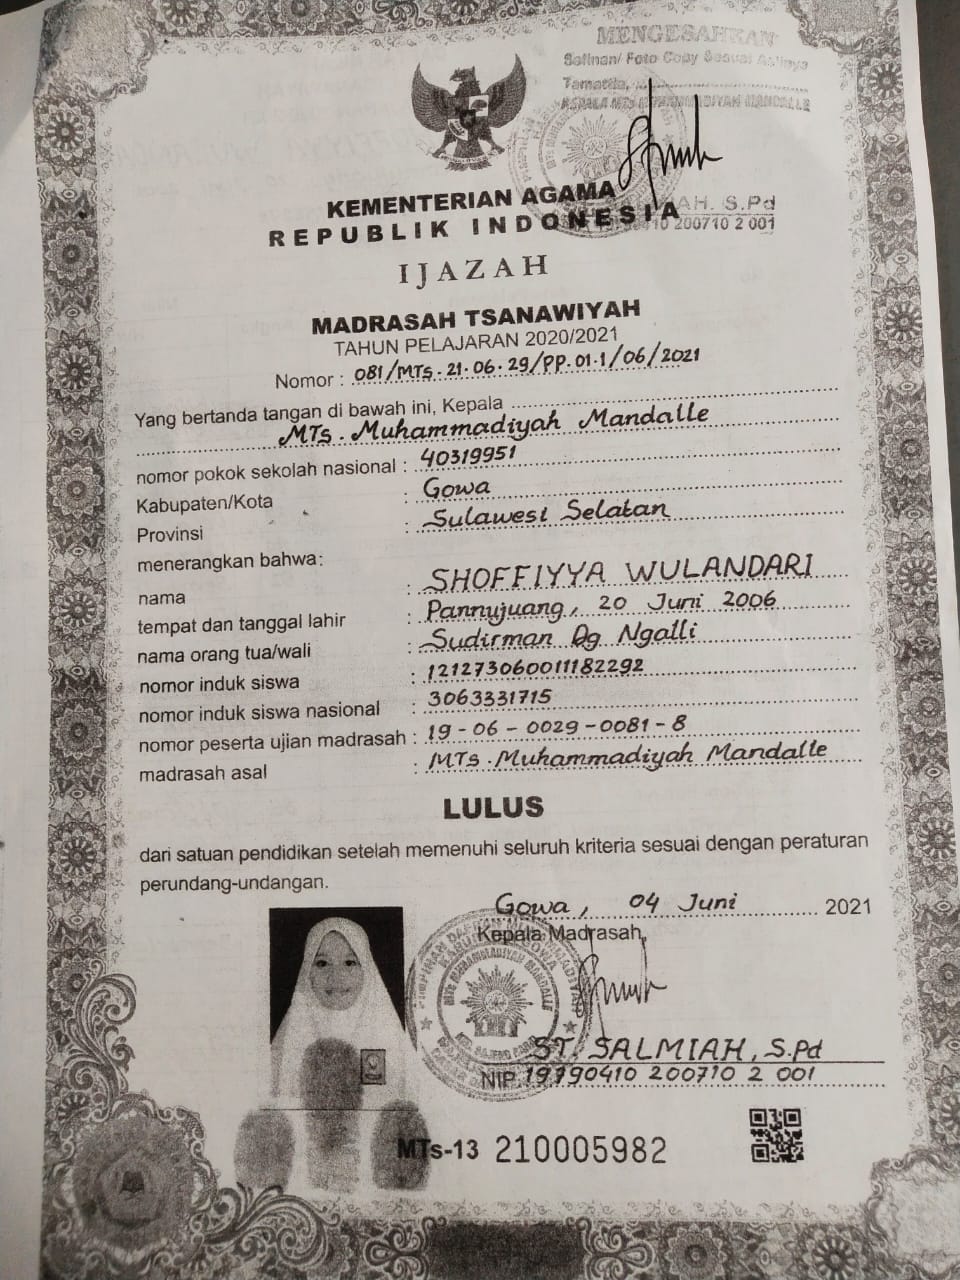 MENGESAHKAN
Salinan/ Foto Copy Sesuai Aslinya
Tamatila,
KEPALA MTS MUHAMMADIYAH MANDALLE
KEMENTERIAN AGAMA
REPUBLIK INDONESIA
IAH. S.Pd
0410 200710 2 001
IJAZAH
MADRASAH TSANAWIYAH
TAHUN PELAJARAN 2020/2021
Nomor : 081/MTs.21.06.29/PP.01.1/06/2021
Yang bertanda tangan di bawah ini, Kepala
MTs. Muhammadiyah Mandalle
nomor pokok sekolah nasional : 40319951
Kabupaten/Kota : Gowa
Provinsi : Sulawesi Selatan
menerangkan bahwa:
nama : SHOFFIYYA WULANDARI
tempat dan tanggal lahir : Pannujuang, 20 Juni 2006
nama orang tua/wali : Sudirman Dg Ngalli
nomor induk siswa : 121273060011182292
nomor induk siswa nasional : 3063331715
nomor peserta ujian madrasah : 19-06-0029-0081-8
madrasah asal : MTs. Muhammadiyah Mandalle
LULUS
dari satuan pendidikan setelah memenuhi seluruh kriteria sesuai dengan peraturan
perundang-undangan.
Gowa, 04 Juni 2021
Kepala Madrasah,
MTS MUHAMMADIYAH MANDALLE
ST. SALMIAH, S.Pd
NIP. 19790410 200710 2 001
MTs-13 210005982